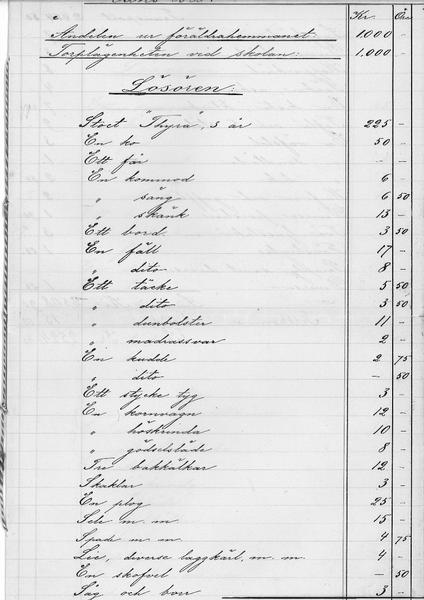 Kr. Öre
Andelen ur föräldrahemmanet: 1000 –
Torplägenheten vid skolan: 1,000 –
Lösören:
Stoet "Thyra", 3 år 225 –
En ko 50 –
Ett får – –
En kommod 6 –
" säng 6 50
" skänk 13 –
Ett bord 3 50
En fäll 17 –
" dito 8 –
Ett täcke 5 50
" dito 3 50
" dunbolster 11 –
" madrassvar 2 –
En kudde 2 75
" dito – 50
Ett stycke tyg 3 –
En kornvagn 12 –
" höskrinda 10 –
" gödselsläde 8 –
Tre bakkälkar 12 –
Skaklar 3 –
En plog 25 –
Sele m. m. 15 –
Spade m. m. 4 75
Lie, diverse laggkärl, m. m. 4 –
En skofvel – 50
Såg och borr 3 –